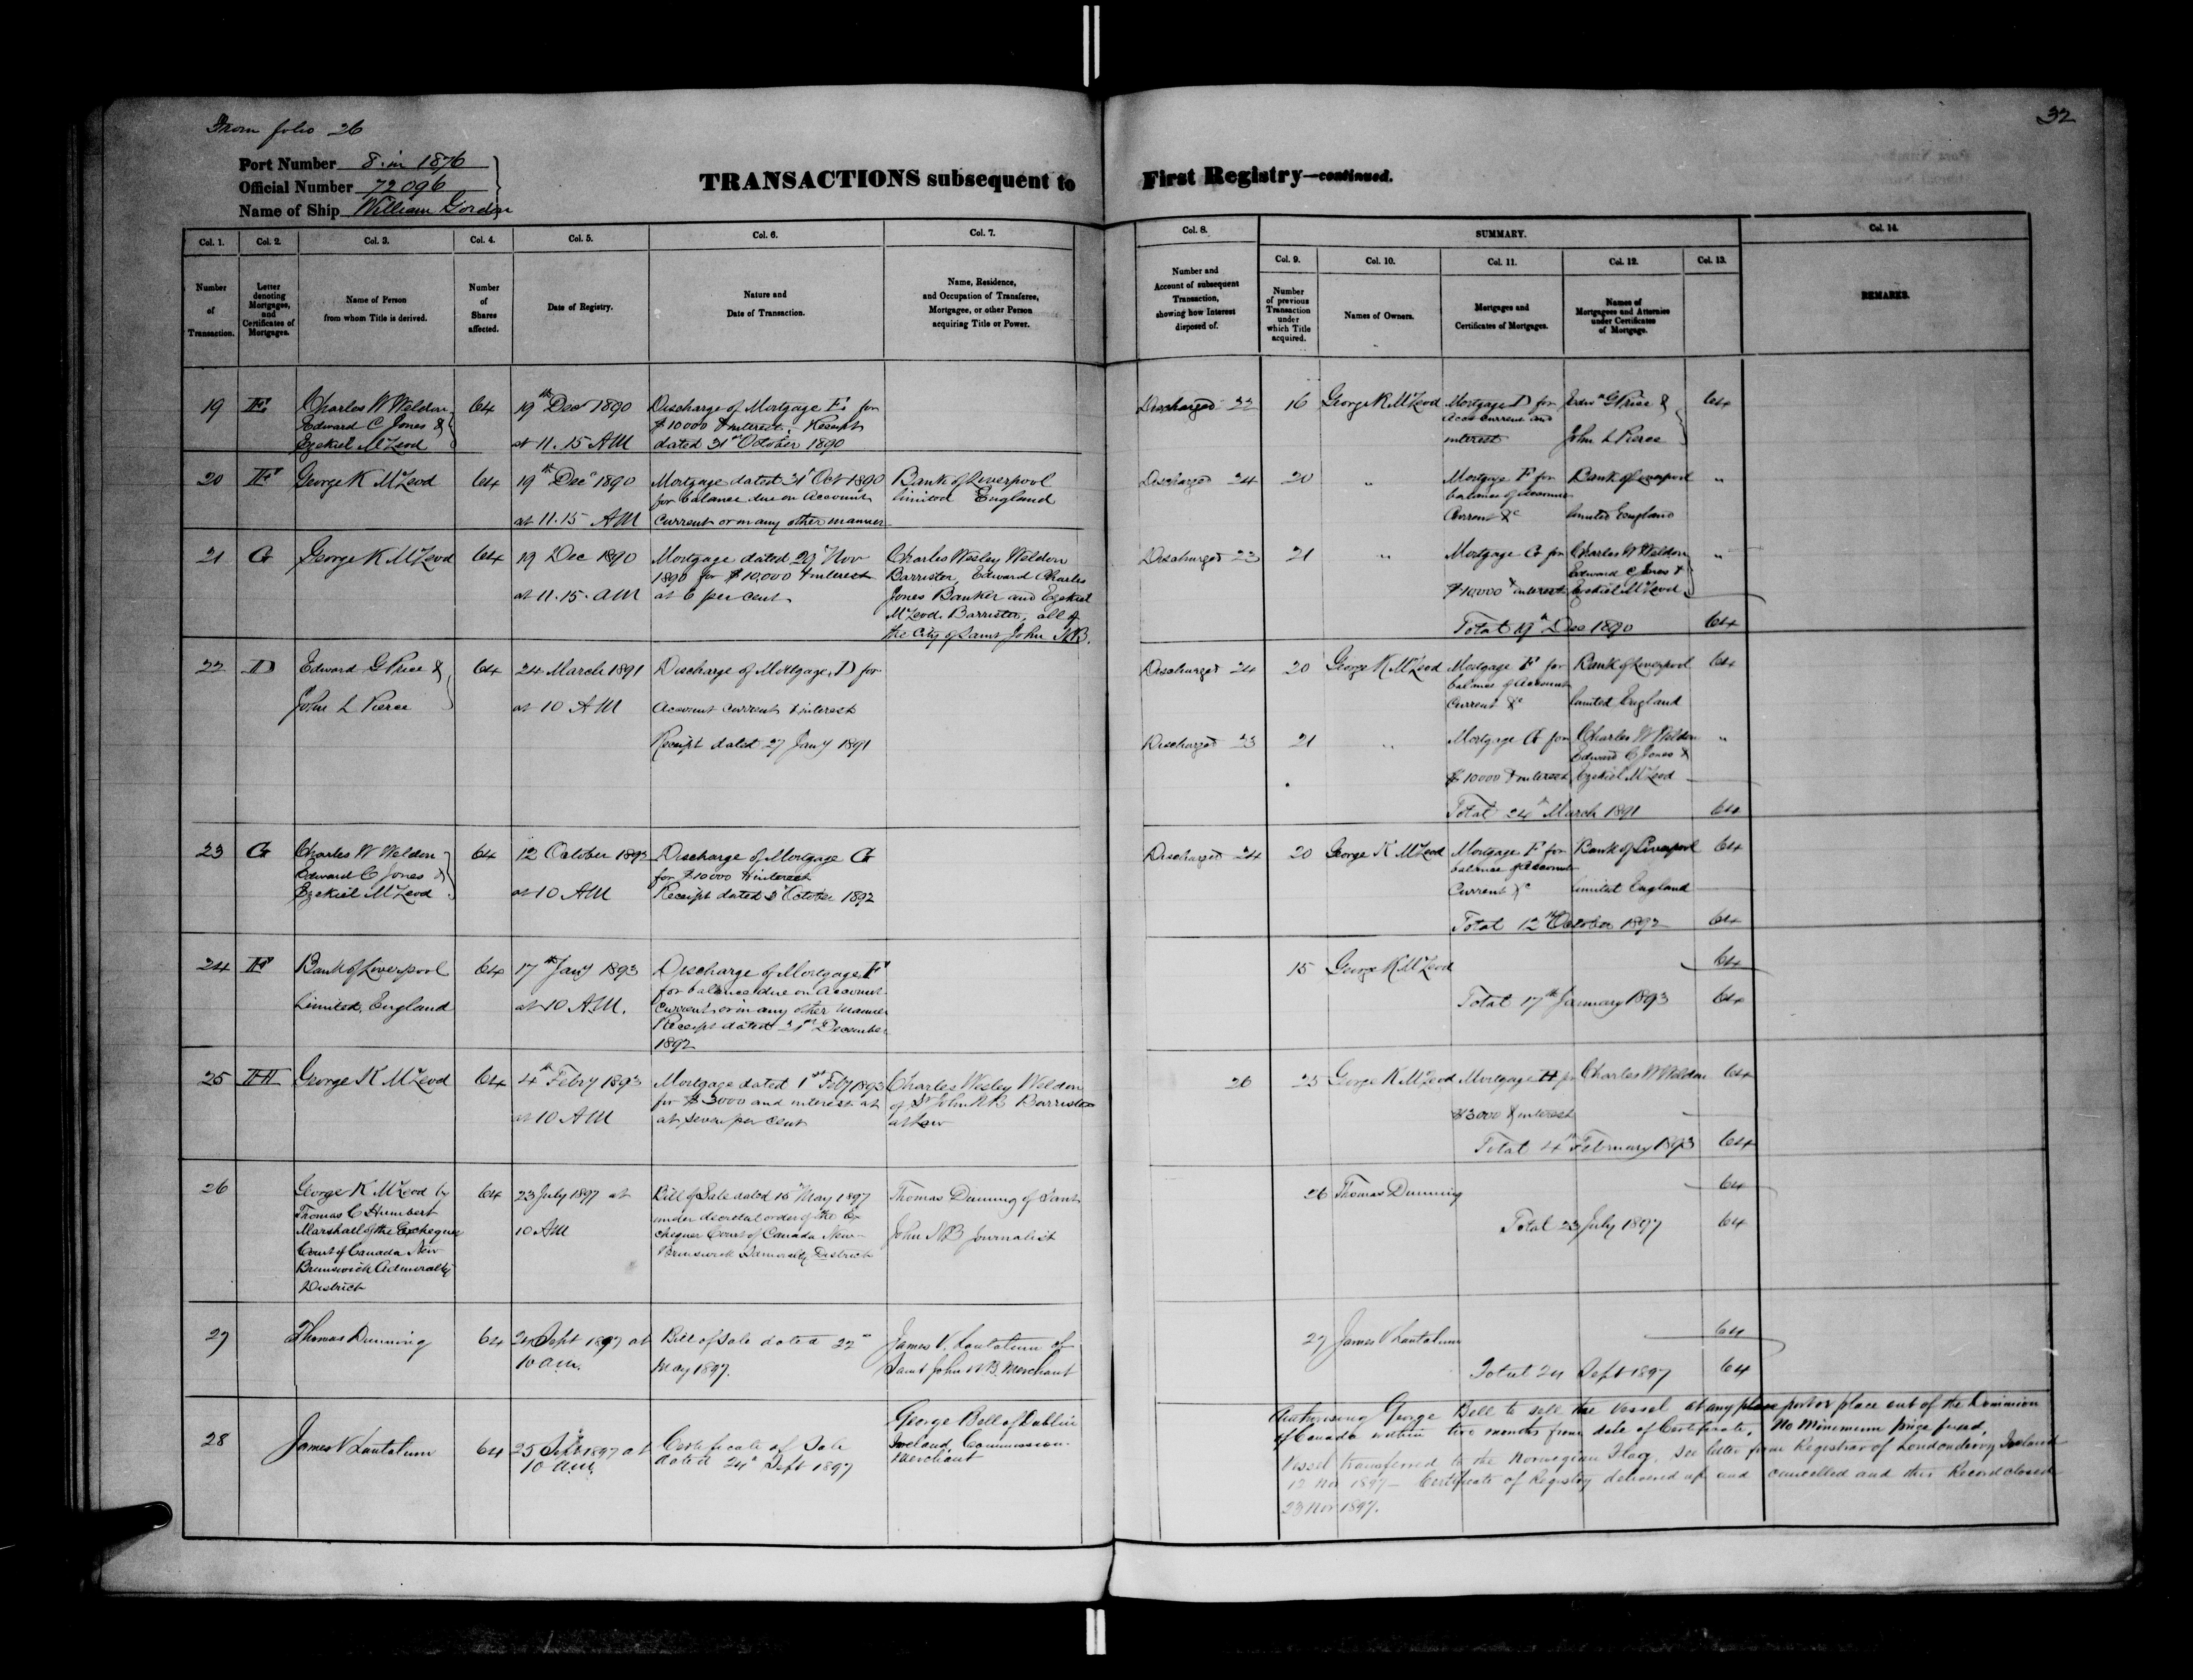 From folio 26
32
Port Number 8 in 1876
Official Number 72096
Name of Ship William Gordon
TRANSACTIONS subsequent to First Registry—continued.
Col. 1. Col. 2. Col. 3. Col. 4. Col. 5. Col. 6. Col. 7. Col. 8. SUMMARY. Col. 14.
Col. 9. Col. 10. Col. 11. Col. 12. Col. 13.
Number
of
Transaction.
Letter
denoting
Mortgages,
and
Certificates of
Mortgages.
Name of Person
from whom Title is derived.
Number
of
Shares
affected.
Date of Registry.
Nature and
Date of Transaction.
Name, Residence,
and Occupation of Transferee,
Mortgagee, or other Person
acquiring Title or Power.
Number and
Account of subsequent
Transaction,
showing how Interest
disposed of.
Number
of previous
Transaction
under
which Title
acquired.
Names of Owners.
Mortgages and
Certificates of Mortgages.
Names of
Mortgagees and Attornies
under Certificates
of Mortgage.
REMARKS.
19 E
Charles W Weldon
Edward C Jones &
Ezekiel McLeod
64
19th Decr 1890
at 11.15 AM
Discharge of Mortgage E for
$10000 & interest. Receipt
dated 31st October 1890
Discharged 22
16 George K McLeod
Mortgage D for
Acct Current and
interest
Edwd G Price &
John L Pierce
64
20 F
George K McLeod
64
19th Decr 1890
at 11.15 AM
Mortgage dated 31st Oct 1890
for balance due on Account
Current or in any other manner
Bank of Liverpool
limited England
Discharged 24
20 "
Mortgage F for
balance of Account
Current &c
Bank of Liverpool
limited England
"
21 G
George K McLeod
64
19 Dec 1890
at 11.15 AM
Mortgage dated 29 Nov
1890 for $10,000 & interest
at 6 per cent
Charles Wesley Weldon
Barrister, Edward Charles
Jones Banker and Ezekiel
McLeod Barrister, all of
the City of Saint John N.B.
Discharged 23
21 "
Mortgage G for
$10,000 & interest
Charles W Weldon
Edward C Jones &
Ezekiel McLeod
"
Total 19th Dec 1890 64
22 D
Edward G Price &
John L Pierce
64
24 March 1891
at 10 AM
Discharge of Mortgage D for
Account current & interest
Receipt dated 27 Jany 1891
Discharged 24
20 George K McLeod
Mortgage F for
balance of Account
Current &c
Bank of Liverpool
limited England
64
Discharged 23
21 "
Mortgage G for
$10000 & interest
Charles W Weldon
Edward C Jones &
Ezekiel McLeod
"
Total 24th March 1891 64
23 G
Charles W Weldon
Edward C Jones &
Ezekiel McLeod
64
12 October 1892
at 10 AM
Discharge of Mortgage G
for $10000 & interest
Receipt dated October 1892
Discharged 24
20 George K McLeod
Mortgage F for
balance of Account
Current &c
Bank of Liverpool
limited England
64
Total 12th October 1892 64
24 F
Bank of Liverpool
Limited, England
64
17th Jany 1893
at 10 A.M.
Discharge of Mortgage F
for balance due on Account
Current or in any other manner
Receipt dated 31st December
1892
15 George K McLeod 64
Total 17th January 1893 64
25 H
George K McLeod
64
4th Febry 1893
at 10 AM
Mortgage dated 1st Feby 1893
for $3000 and interest at
at seven per cent
Charles Wesley Weldon
of St John NB Barrister
at Law
26
25 George K McLeod
Mortgage H for
$3000 & interest
Charles W Weldon
64
Total 4th February 1893 64
26
George K McLeod by
Thomas C Humbert
Marshall of the Exchequer
Court of Canada New
Brunswick Admiralty
District
64
23 July 1897 at
10 AM
Bill of Sale dated 15th May 1897
under decretal order of the Ex
chequer Court of Canada New
Brunswick Admiralty District
Thomas Dunning of Saint
John NB Journalist
26 Thomas Dunning 64
Total 23 July 1897 64
27
Thomas Dunning
64
24 Sept 1897 at
10 a.m.
Bill of Sale dated 22nd
May 1897.
James V. Lantalum of
Saint John N.B. Merchant
27 James V Lantalum 64
Total 24 Sept 1897 64
28
James V Lantalum
64
25 Sept 1897 at
10 a.m.
Certificate of Sale
dated 24th Sept 1897
George Bell of Dublin
Ireland, Commission
Merchant
Authorising George Bell to sell the vessel at any place port or place out of the Dominion
of Canada within two months from date of Certificate, No Minimum price fixed,
Vessel transferred to the Norwegian Flag, see letter from Registrar of Londonderry, Ireland
12 Nov 1897 — Certificate of Registry delivered up and cancelled and this Record closed
23 Nov 1897.